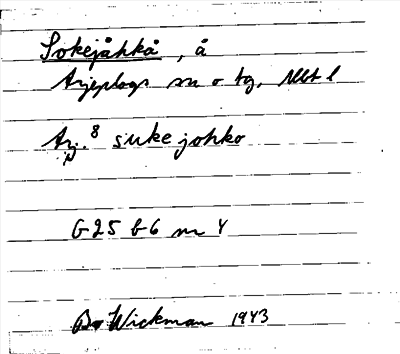 Sokejåhkå, å
Arjeplogs sn o tg, Nbt l
Arj. 8 suke johko
G25 b6 sn 4
Bo Wickman 1943